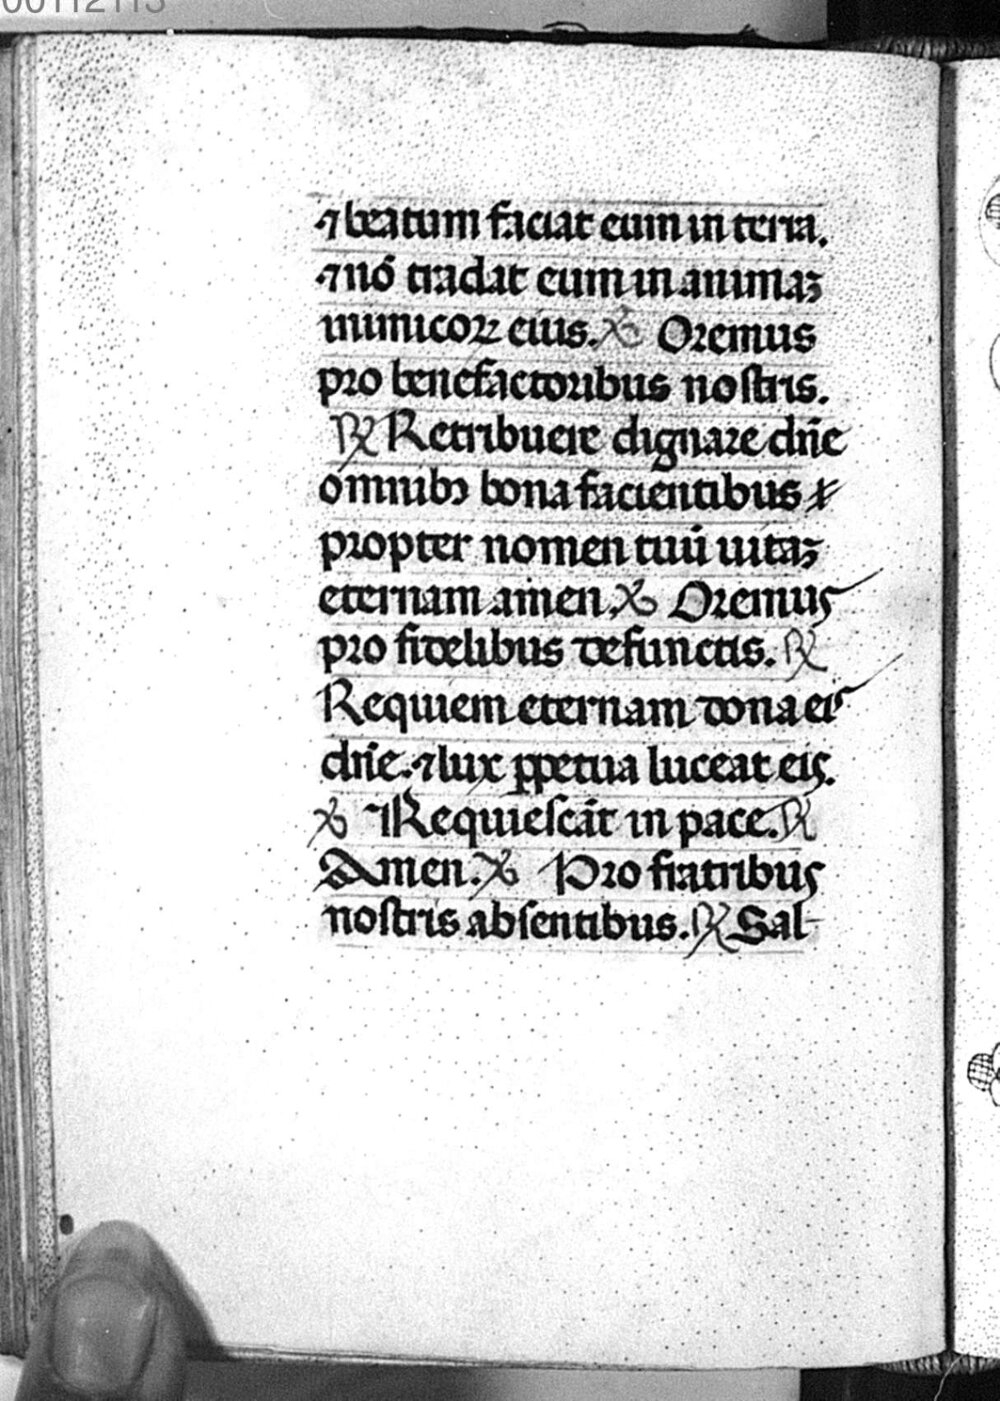 ⁊ beatum faciat eum in terra.
⁊ nō tradat eum in animaꝫ
inimicoꝝ eius. ℣ Oremus
pro benefactoribus nostris.
℟ Retribuere dignare dn̄e
omnibꝰ bona facientibus
propter nomen tuū uitaꝫ
eternam amen. ℣ Oremus
pro fidelibus defunctis. ℟
Requiem eternam dona eis
dn̄e. ⁊ lux ꝑpetua luceat eis.
℣ Requiescāt in pace. ℟
Amen. ℣ Pro fratribus
nostris absentibus. ℟ Sal-